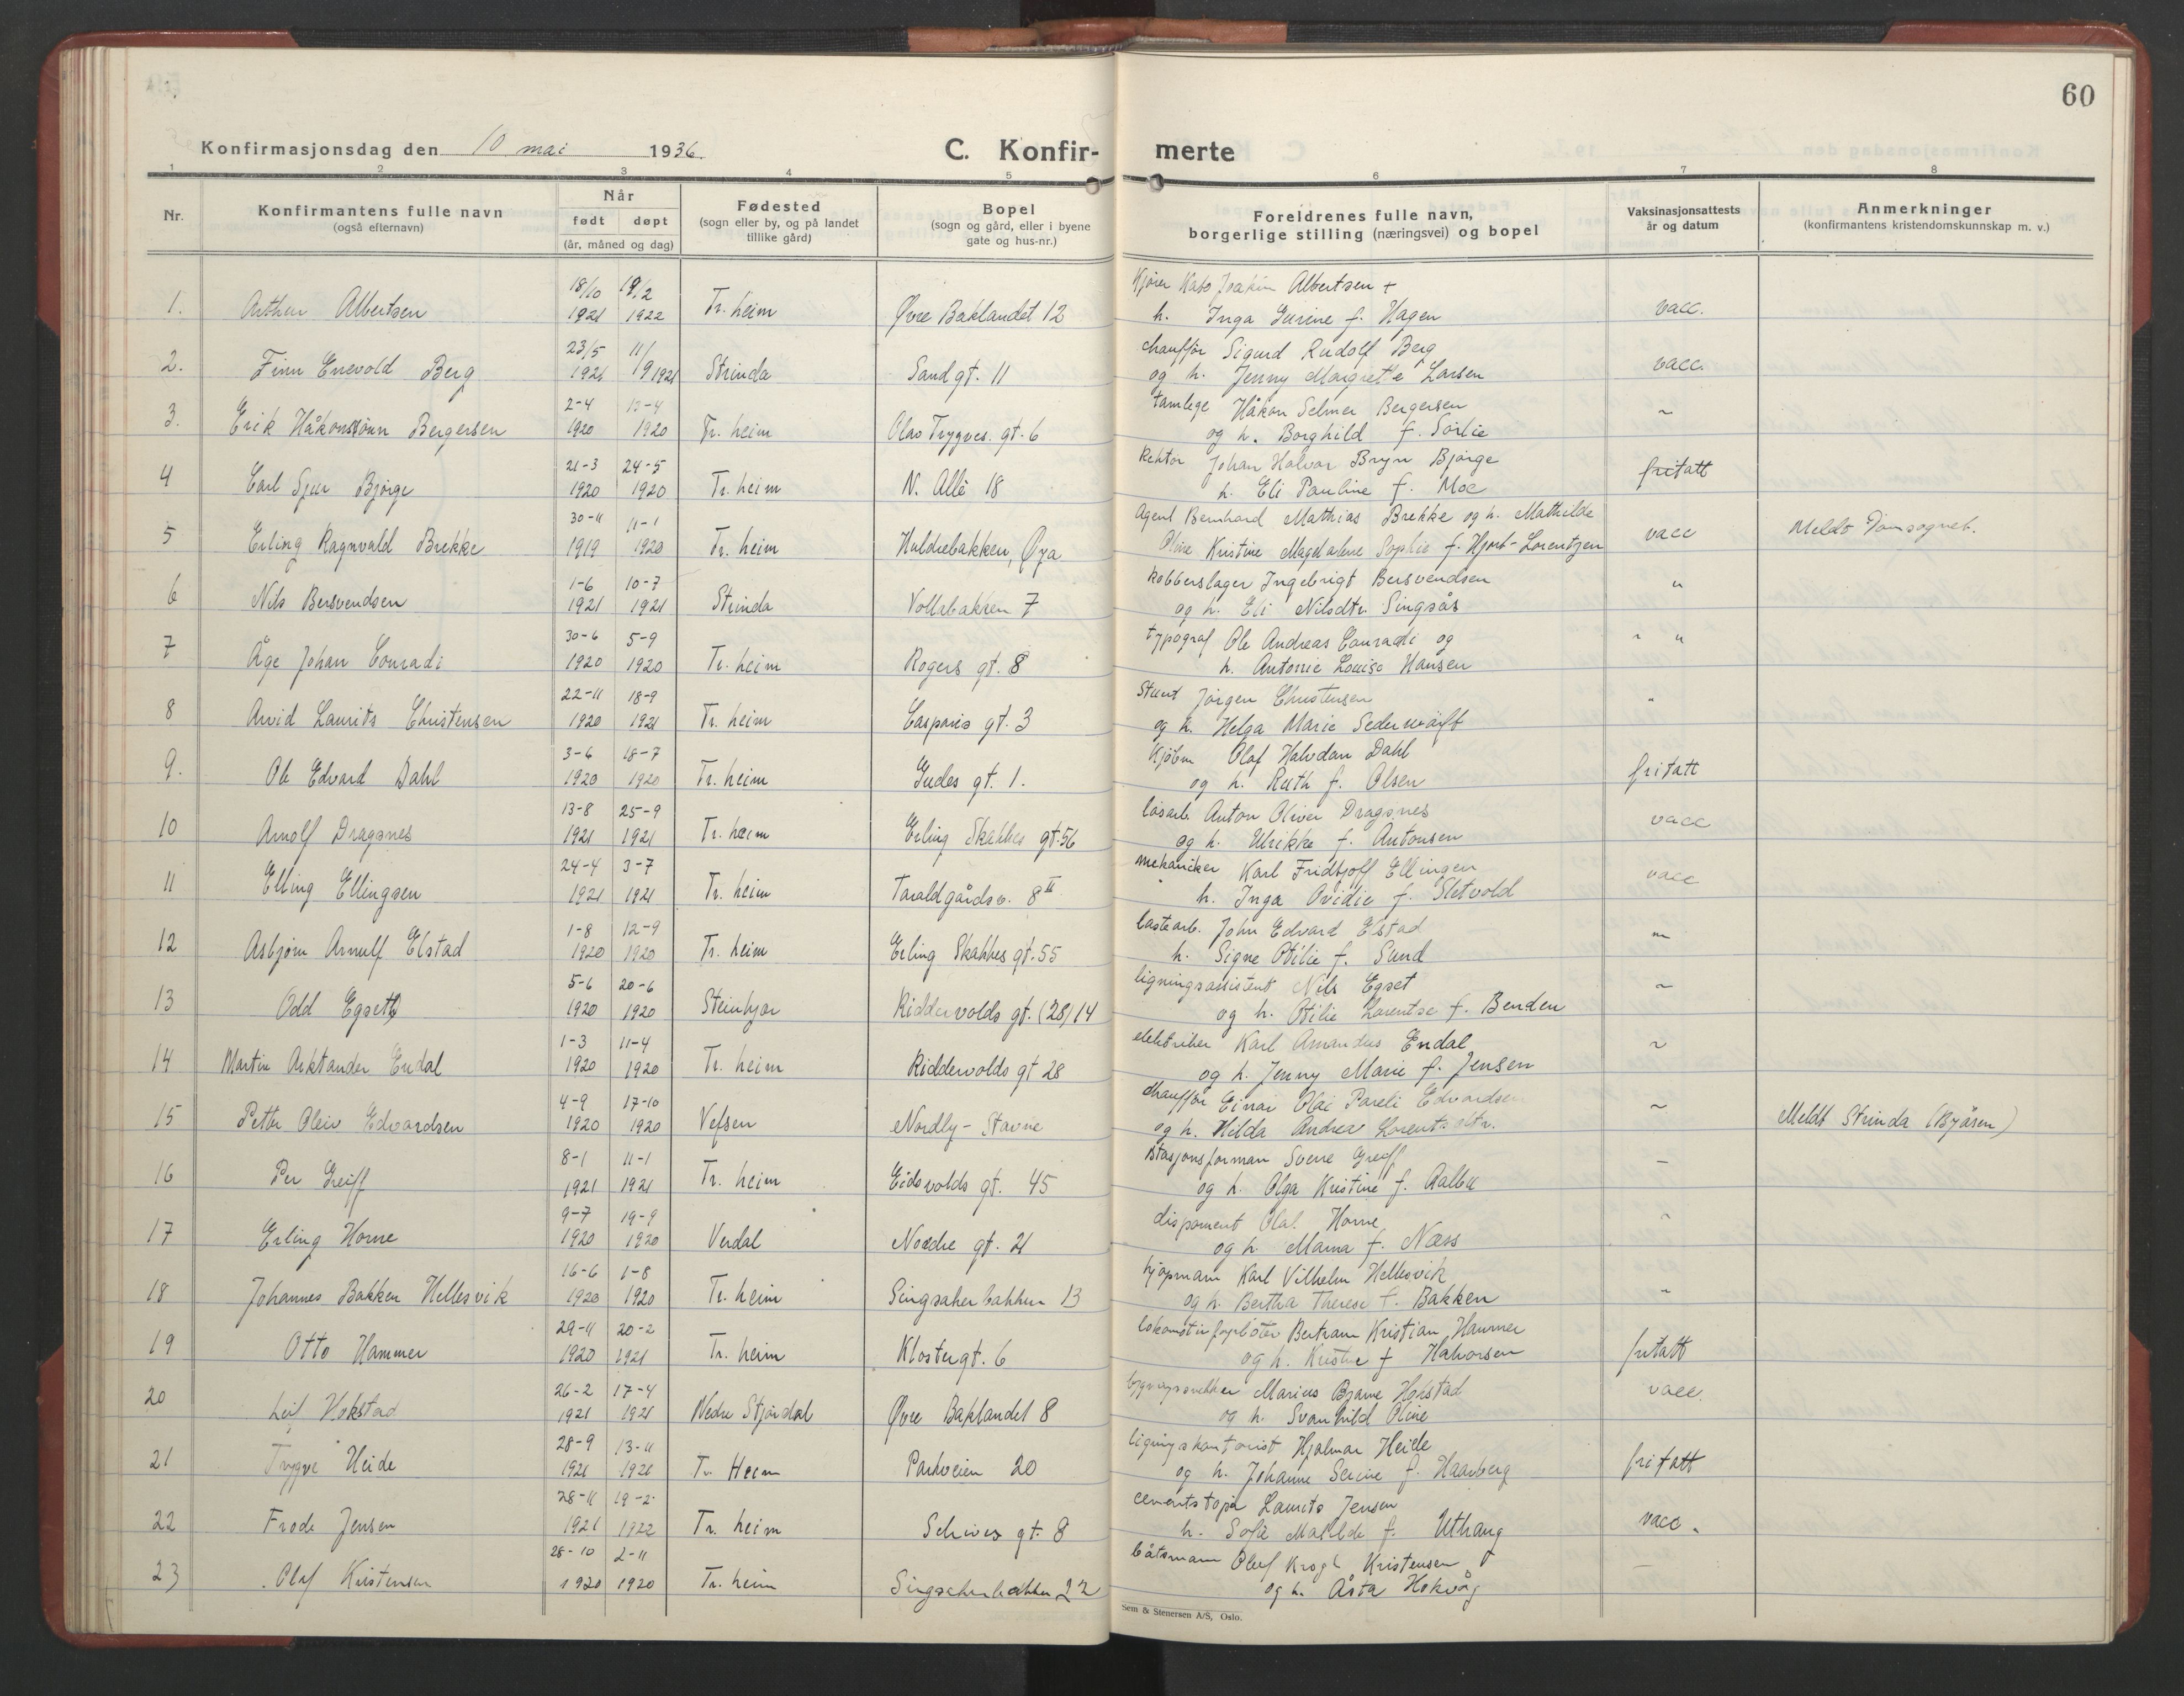 60
Konfirmasjonsdag den 10 mai 1936.
C. Konfirmerte
1 2 3 4 5 6 7 8
Nr.
Konfirmantens fulle navn
(også efternavn)
Når
født døpt
(år, måned og dag)
Fødested
(sogn eller by, og på landet
tillike gård)
Bopel
(sogn og gård, eller i byene
gate og hus-nr.)
Foreldrenes fulle navn,
borgerlige stilling (næringsvei) og bopel
Vaksinasjonsattests
år og datum
Anmerkninger
(konfirmantens kristendomskunnskap m. v.)
18/10 19/2 Kjører Joakim Albertsen +
1. Arthur Albertsen 1921 1922 Tr.heim Øvre Baklandet 12 h. Inga Gurine f. Hagen vacc.
23/5 11/ chauffør Sigurd Rudolf Berg
2. Finn Enevold Berg 1921 9 1921 Strinda Sandgt. 11 og h. Jenny Margrethe Larsen vacc.
2-4 13-4 tannlege Håkon Selmer Bergersen
3. Erik Håkonssønn Bergersen 1920 1920 Tr.heim Olav Trygves. gt. 6 og h. Borghild f. Sørlie ~
21-3 24-5 Rektor Johan Halvor Bryn Bjørge
4 Carl Sjur Bjørge 1920 1920 Tr.heim N. Allé 18 h. Eli Pauline f. Moe fritatt
30-11 11-1 Agent Bernhard Mathias Brekke og h. Mathilde
5 Erling Ragnvald Brekke 1919 1920 Tr.heim Huldrebakken, Øya Oline Kristine Magdalene Sophie f. Hjort-Lorentzen vacc Meldt Domsognet.
1-6 10-7 kobberslager Ingebrigt Bersvendsen
6 Nils Bersvendsen 1921 1921 Strinda Vollabakken 7 og h. Eli Nilsdtr. Singsås "
30-6 5-9 typograf Ole Andreas Conradi og
7 Åge Johan Conradi 1920 1920 Tr.heim Rogers gt. 8 h. Antonie Louise Hansen ~ "
22-11 18-9 Jørgen Christensen
8 Arvid Laurits Christensen 1920 1921 Tr.heim Casparis gt. 3 og h. Helga Marie "
3-6 18-7 Kjøbm Olaf Halvdan Dahl
9. Ole Edvard Dahl 1920 1920 Tr.heim Gudes gt. 1. og h. Ruth f. Olsen fritatt
13-8 25-9 løsarb. Anton Oliver Dragsnes
10 Arnolf Dragsnes 1921 1921 Tr.heim Erling Skakkes gt. 56 og h. Ulrikke f. Antonsen vacc
24-4 3-7 mekaniker Karl Fridtjolf Ellingen
11 Elling Ellingsen 1921 1921 Tr.heim Taraldgårdsv. 8 II h. Inga Ovidie f. Sletvold vacc
1-8 12-9 lastearb. John Edvard Elstad
12 Asbjørn Arnulf Elstad 1920 1920 Tr.heim Erling Skakkes gt. 55 h. Signe Otilie f. Sund "
5-6 20-6 ligningsassistent Nils Egset
13 Odd Egset 1920 1920 Steinkjer Riddervolds gt. (28) 14 og h. Otilie Lorentse f. Benden ~
1-3 11-4 elektriker Karl Amandus Endal
14 Martin Arktander Endal 1920 1920 Tr.heim Riddervolds gt 28 og h. Jenny Marie f. Jensen ~
4-9 17-10 chauffør Einar Olai Pareli Edvardsen
15 Petter Oleiv Edvardsen 1920 1920 Vefsen Nordly - Stavne og h. Hilda Andrea Lorentsdtr. ~ Meldt Strinda (Byåsen)
8-1 11-1 stasjonsformann Sverre Greiff
16 Per Greiff 1921 1921 Tr.heim Eidsvolds gt. 45 og h. Olga Kristine f. Aalbu –
9-7 19-9 disponent Olaf Horne
17 Erling Horne 1920 1920 Verdal Nordre gt. 21 og h. Marna f. Næss ~
16-6 1-8 kjøpmann Karl Vilhelm Hellesvik
18 Johannes Bakken Hellesvik 1920 1920 Tr.heim Singsakerbakken 13 og h. Bertha Therese f. Bakken "
29-11 20-2 lokomotivfyrbøter Bertram Kristian Hammer
19 Otto Hammer 1920 1921 Tr.heim Klostergt. 6 og h. Kristine f Halvorsen fritatt
26-2 17-4 Marius Bjarne Hokstad
20 Leif Hokstad 1921 1921 Nedre Stjørdal Øvre Baklandet 8 og h. Svanhild Oline vacc.
28-9 13-11 ligningskontorist Hjalmar Heide
21 Trygve Heide 1921 1921 Tr. Heim Parkveien 20 og h. Johanne Serine f. Haarberg fritatt
28-11 19-2 cementstøper Laurits Jensen
22 Frode Jensen 1921 1922 Tr.heim Schives gt. 8 h. Sofie Matilde f. Uthaug vacc.
28-10 2-11 båtsmann Oluf Krogh Kristensen
23 Olaf Kristensen 1920 1920 Tr.heim Singsakerbakken 22 og h. Åsta Hokvåg
Sem & Stenersen A/S, Oslo.